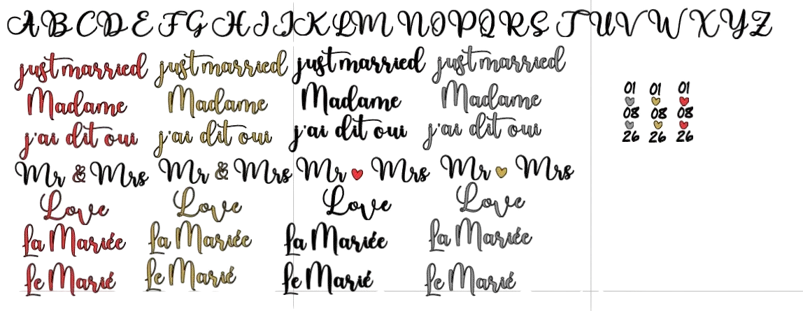 A B C D E F G H I J K L M N O P Q R S T U V W X Y Z
just married just married just married just married
Madame Madame Madame Madame
j'ai dit oui j'ai dit oui j'ai dit oui j'ai dit oui
Mr & Mrs Mr & Mrs Mr ❤ Mrs Mr ❤ Mrs
Love Love Love Love
la Mariée la Mariée la Mariée la Mariée
le Marié le Marié le Marié le Marié
01 01 01
08 08 08
26 26 26